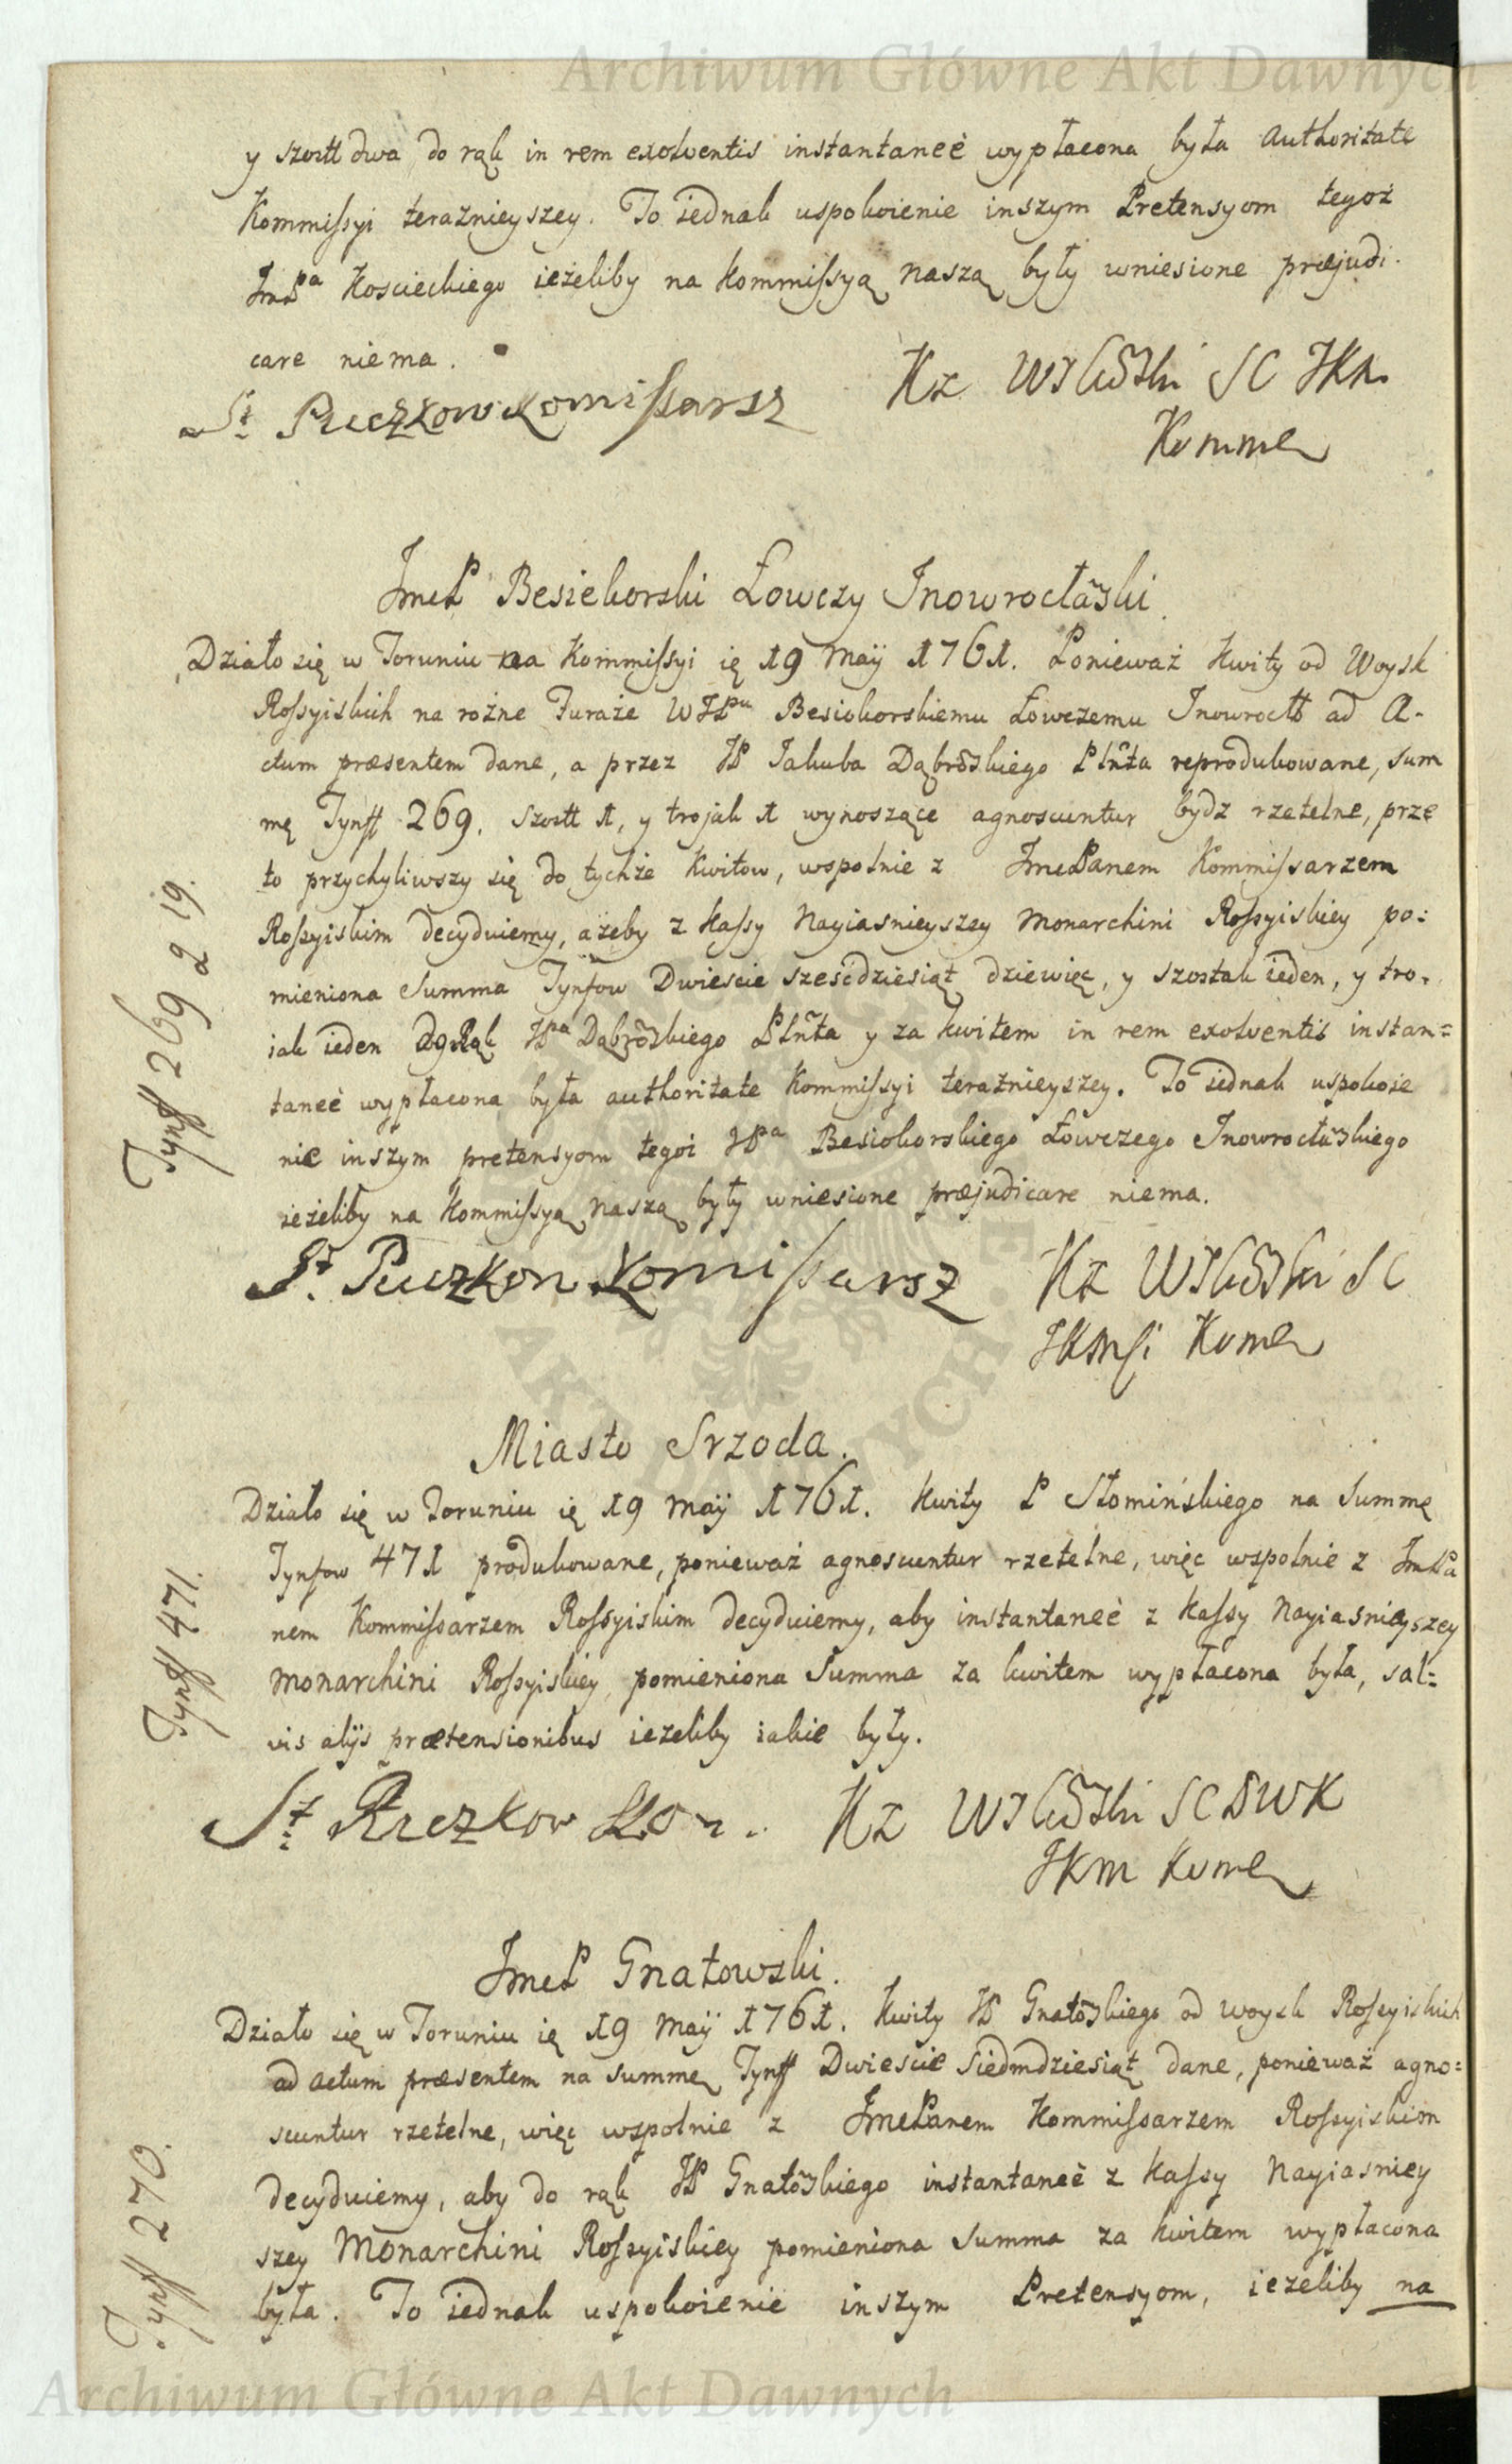 Archiwum Główne Akt Dawnych
y szostt dwa do rąk in rem exolventis instantaneè wypłacona była authoritate
Kommissyi teraznieyszey. To iednak uspokoienie inszym Pretensyom tegoż
JmPa Koscieckiego ieżeliby na kommissyą naszą były wniesione præjudi-
care niema.
St Puczkow Komissarsz
Kz SC JKM
Komme
JmcP Besiekorski Łowczy Inowrocłãski
Działo się w Toruniu na Kommissyi ię 19 Maÿ 1761. Ponieważ kwity od Woysk
Rossyiskich na rożne Furaże WJPu Besiekorskiemu Łowczemu Inowrocłł ad A-
ctum præsentem dane, a przez JP Jakuba Dąbrõskiego Plñta reprodukowane, sum
mę Tynff 269. szostt 1, y trojak 1 wynoszące agnoscuntur bydz rzetelne, prze
to przychyliwszy się do tychże Kwitow, wspolnie z JmcPanem Kommissarzem
Rossyiskim decyduiemy, ażeby z kassy Nayiasnieyszey Monarchini Rossyiskiey po-
mieniona Summa Tynfow Dwiescie szescdziesiąt dziewięc, y szostak ieden, y tro-
iak ieden do Rąk JPa Dąbrõskiego Plñta y za kwitem in rem exolventis instan=
taneè wypłacona była authoritate Kommissyi teraznieyszey. To iednak uspokoie
nie inszym pretensyom tegoż JPa Besiekorskiego Łowczego Inowrocłãskiego
ieżeliby na Kommissyą naszą były wniesione præjudicare niema.
Tynff 269 2 19.
St. Puczkow Komissarsz
Kz SC
JKMsi Kome
Miasto Srzoda.
Działo się w Toruniu ię 19 Maÿ 1761. Kwity P Słomińskiego na Summę
Tynfow 471 produkowane, ponieważ agnoscuntur rzetelne, więc wspolnie z JmcPa
nem Kommissarzem Rossyiskim decyduiemy, aby instantaneè z kassy Nayiasnieyszey
Monarchini Rossyiskiey, pomieniona Summa za kwitem wypłacona była, sal=
vis alijs prætensionibus ieżeliby iakie były.
Tynff 471.
St. Puczkow Kom.
Kz SCDWK
JKM Kome
JmcP Gnatowski.
Działo się w Toruniu ię 19 Maÿ 1761. Kwity JP Gnatõskiego od woysk Rossyiskich
ad actum præsentem na summę Tynff Dwiescie Siedmdziesiąt dane, ponieważ agno=
scuntur rzetelne, więc wspolnie z JmcPanem Kommissarzem Rossyiskim
decyduiemy, aby do rąk JP Gnatõskiego instantaneè z kassy Nayiasniey
szey Monarchini Rossyiskiey pomieniona Summa za kwitem wypłacona
była. To iednak uspokoienie inszym Pretensyom, ieżeliby na
Tynff 270.
Archiwum Główne Akt Dawnych